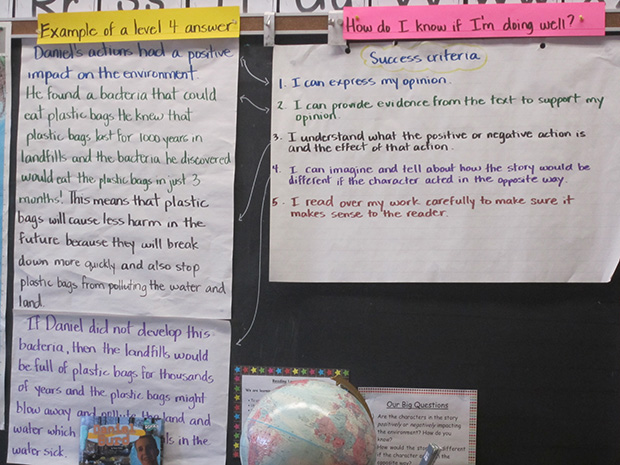 Example of a level 4 answer
Daniel's actions had a positive
impact on the environment.
He found a bacteria that could
eat plastic bags. He knew that
plastic bags last for 1000 years in
landfills and the bacteria he discovered
would eat the plastic bags in just 3
months! This means that plastic
bags will cause less harm in the
future because they will break
down more quickly and also stop
plastic bags from polluting the water and
land.
If Daniel did not develop this
bacteria, then the landfills would
be full of plastic bags for thousands
of years and the plastic bags might
blow away and pollute the land and
water which
in the
water sick.
How do I know if I'm doing well?
Success criteria
1. I can express my opinion.
2. I can provide evidence from the text to support my
opinion.
3. I understand what the positive or negative action is
and the effect of that action.
4. I can imagine and tell about how the story would be
different if the character acted in the opposite way.
5. I read over my work carefully to make sure it
makes sense to the reader.
Reading
We are
Our Big Questions
Are the characters in the story
positively or negatively impacting
the environment? How do you
know?
How would the different
if the character
opposite way?